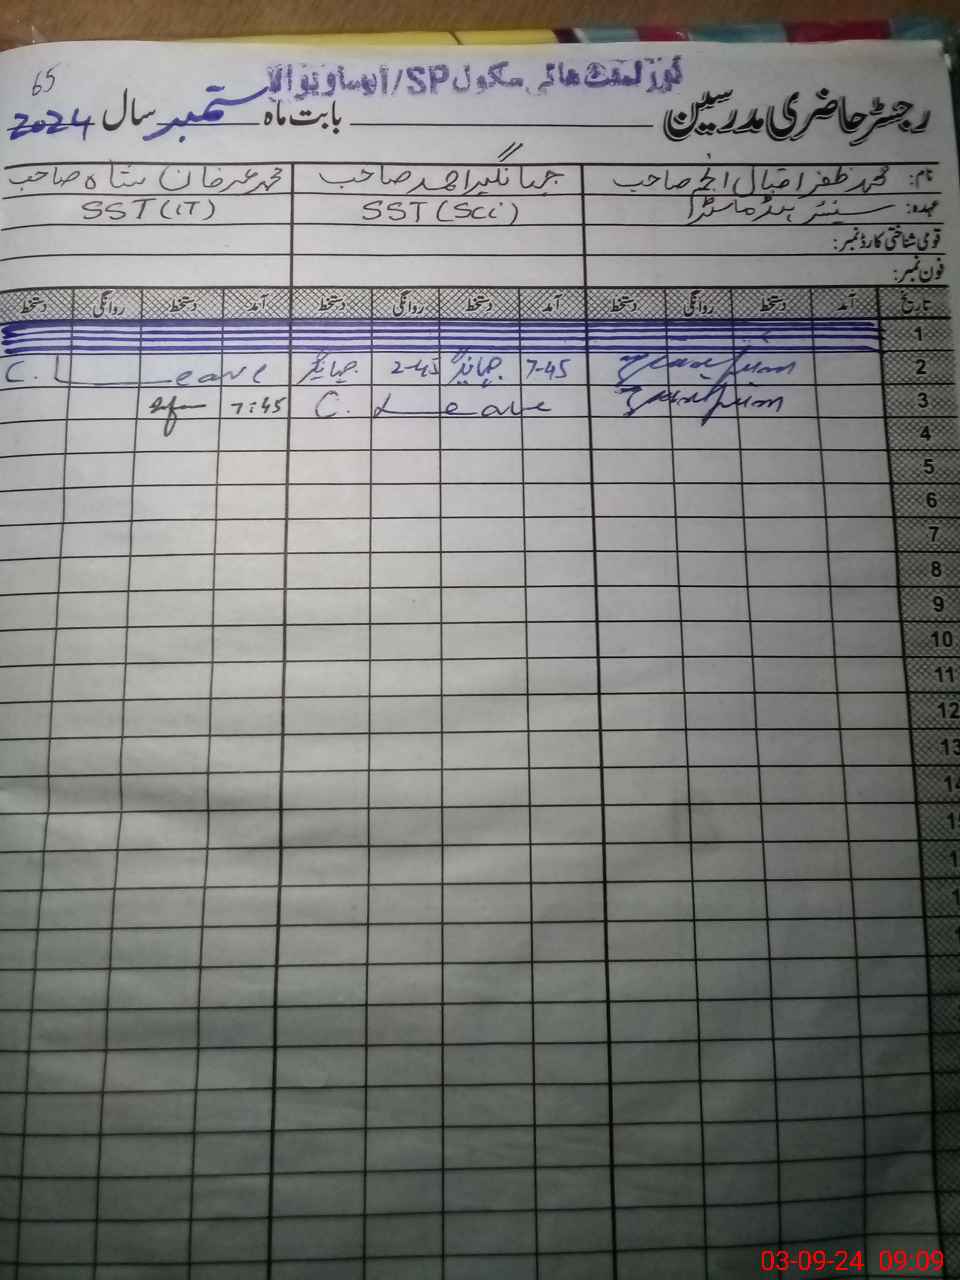 65
گورنمنٹ ہائی سکول SP/
رجسٹر حاضری مدرسین بابت ماہ ستمبر سال 2024
نام: محمد ظفر اقبال انجم صاحب جہانگیر احمد صاحب محمد عرفان شاہ صاحب
عہدہ: سینئر ہیڈ ماسٹر SST (Sci) SST (IT)
قومی شناختی کارڈ نمبر:
فون نمبر:
تاریخ آمد دستخط روانگی دستخط آمد دستخط روانگی دستخط آمد دستخط روانگی دستخط
1
2 7-45 جہانگیر 2-45 جہانگیر C. Leave
3 C. Leave 7:45
4
5
6
7
8
9
10
11
12
13
14
03-09-24 09:09